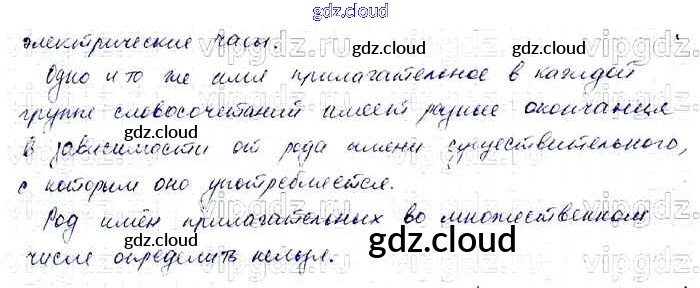 gdz.cloud
электрические часы. gdz.cloud
Одно и то же имя прилагательное в каждой
gdz.cloud gdz.cloud
группе словосочетаний имеет разные окончания
в зависимости от рода имени существительного,
gdz.cloud gdz.cloud
с которым оно употребляется.
Род имён прилагательных во множественном
gdz.cloud gdz.cloud
числе определить нельзя.
gdz.cloud